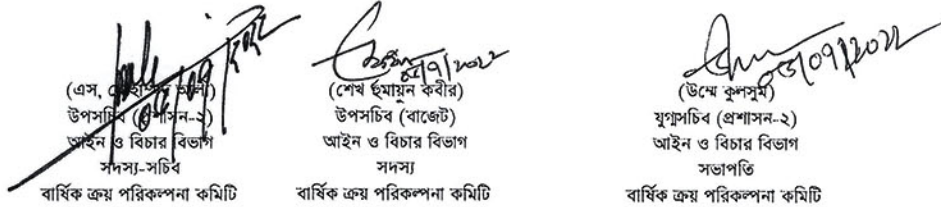 (এস, মোহাম্মদ আলী)
উপসচিব (প্রশাসন-২)
আইন ও বিচার বিভাগ
সদস্য-সচিব
বার্ষিক ক্রয় পরিকল্পনা কমিটি
(শেখ হুমায়ুন কবীর)
উপসচিব (বাজেট)
আইন ও বিচার বিভাগ
সদস্য
বার্ষিক ক্রয় পরিকল্পনা কমিটি
০৬/০৭/২০২২
(উম্মে কুলসুম)
যুগ্মসচিব (প্রশাসন-২)
আইন ও বিচার বিভাগ
সভাপতি
বার্ষিক ক্রয় পরিকল্পনা কমিটি